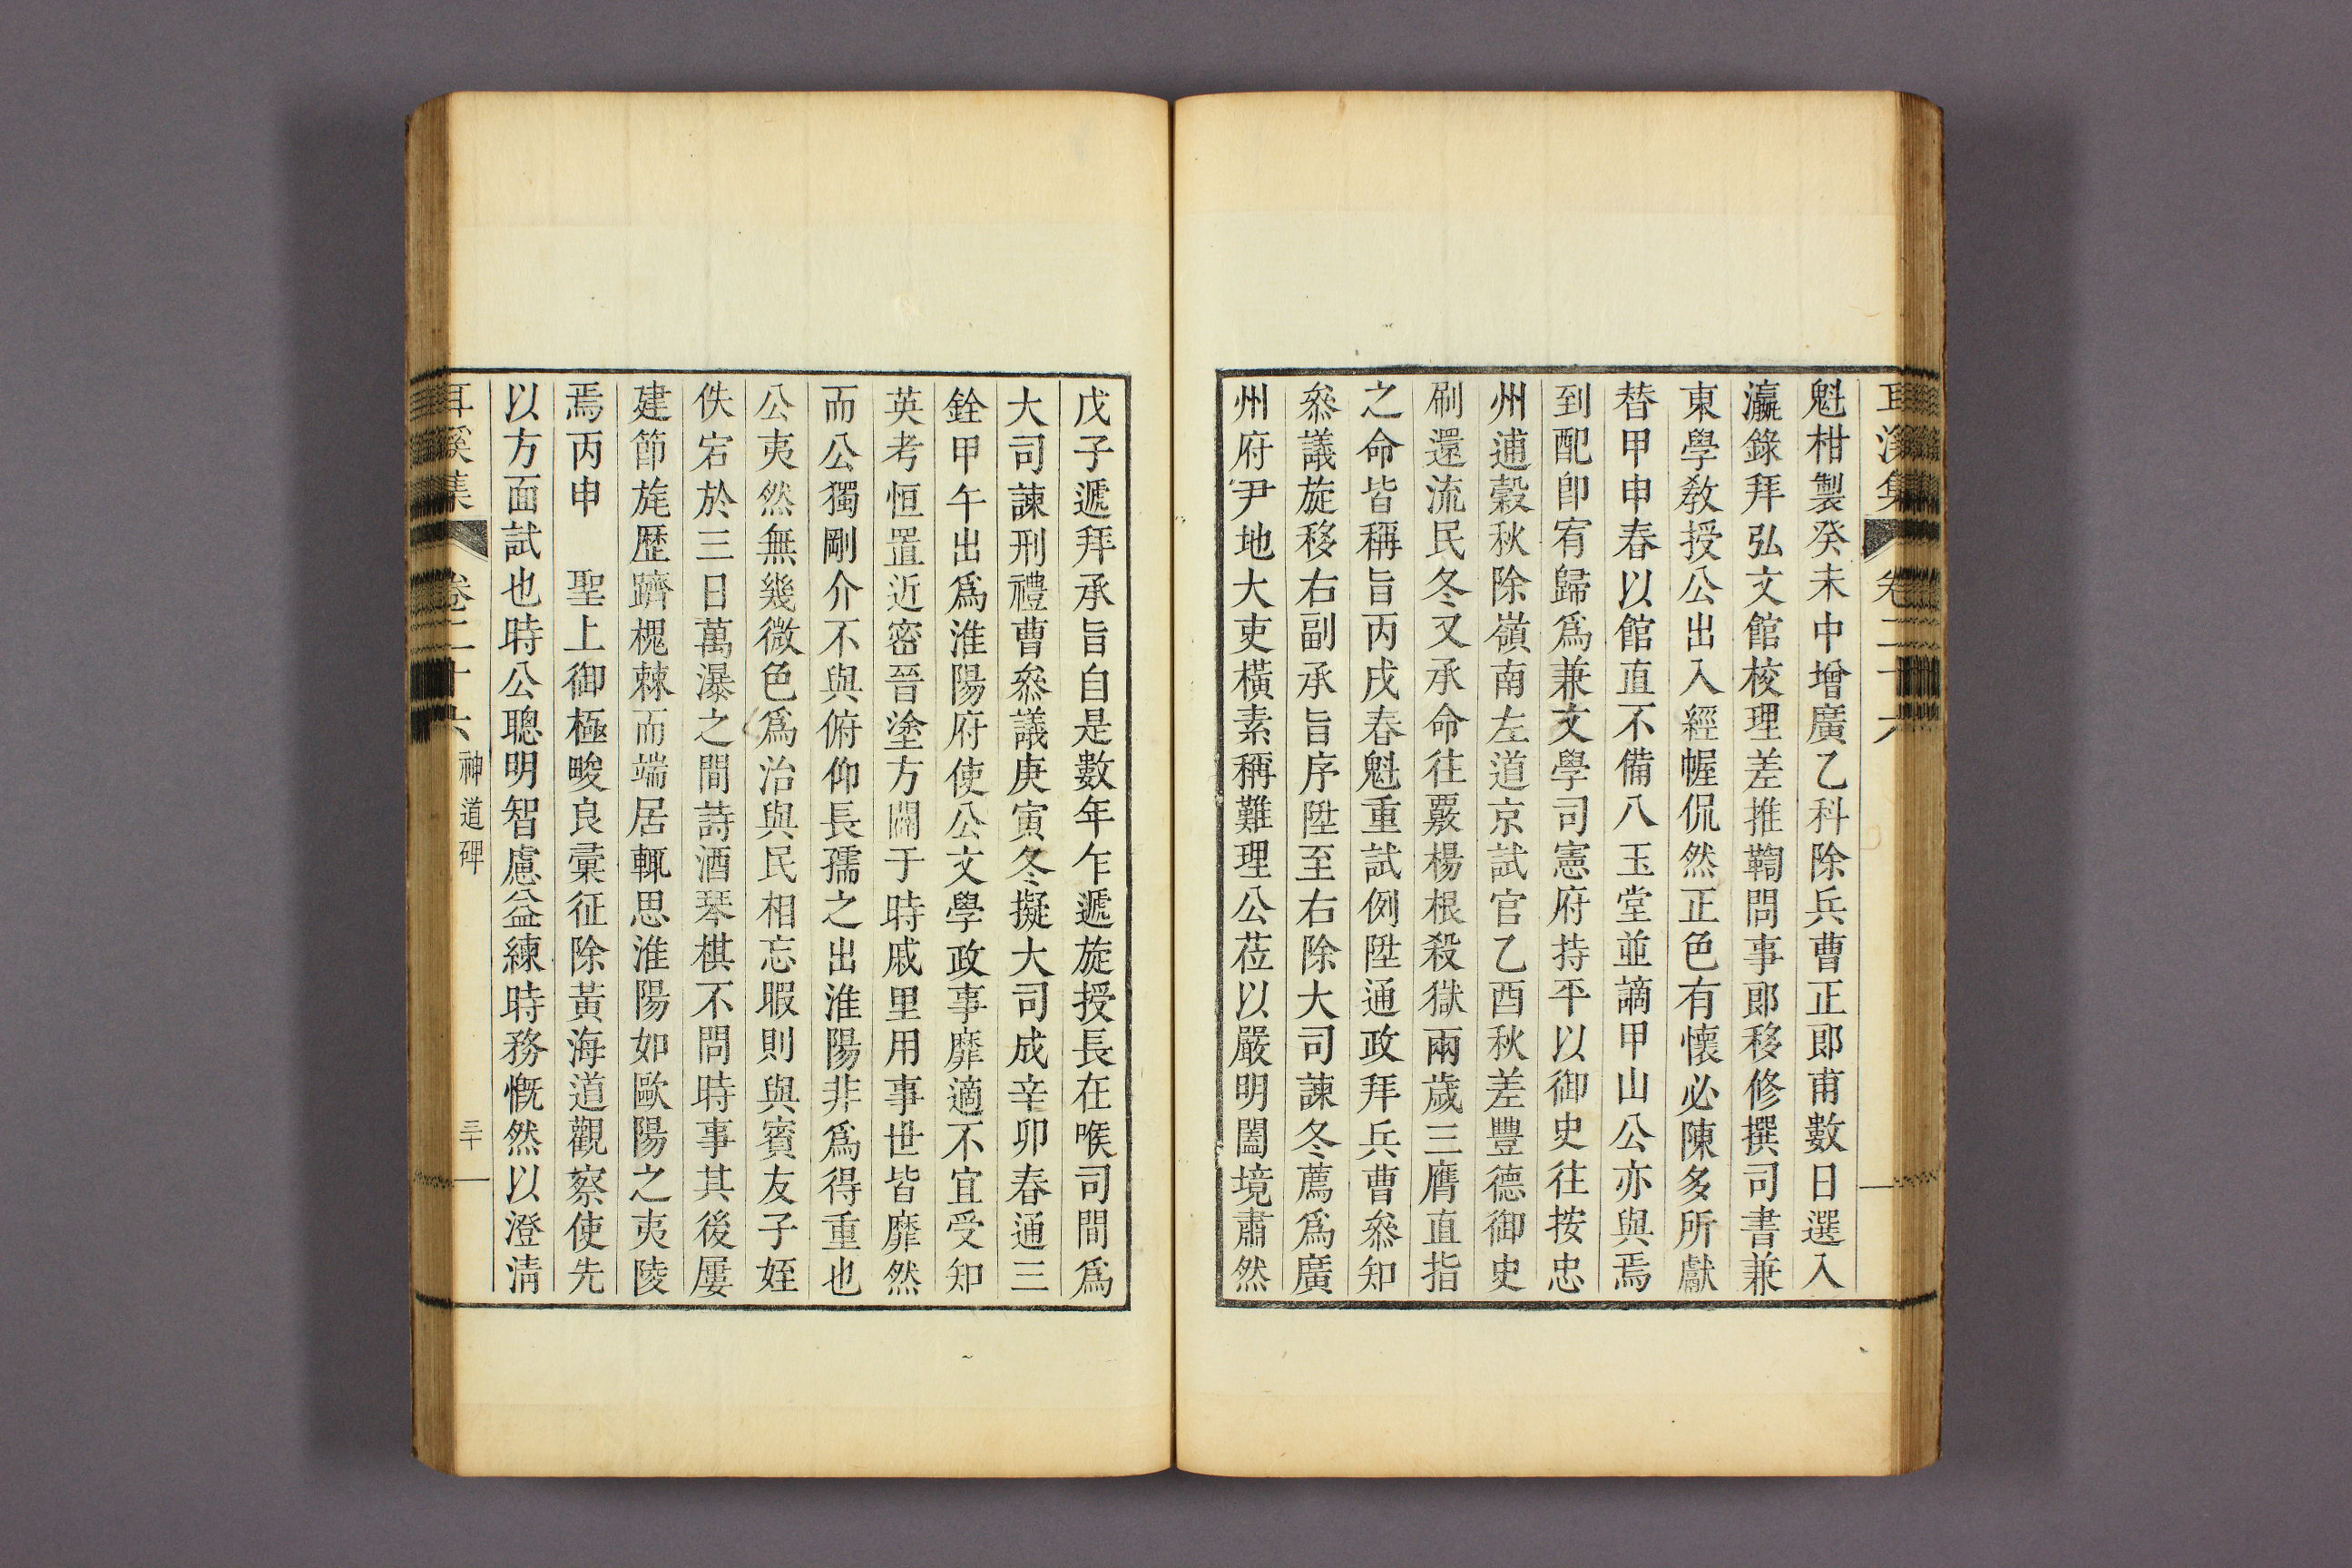 魁柑製癸未中增廣乙科除兵曹正郞甫數日選入
瀛錄拜弘文館校理差推鞫問事郞移修撰司書兼
東學敎授公出入經幄侃然正色有懷必陳多所獻
替甲申春以館直不備八玉堂並謫甲山公亦與焉
到配卽宥歸爲兼文學司憲府持平以御史往按忠
州逋穀秋除嶺南左道京試官乙酉秋差豐德御史
刷還流民冬又承命往覈楊根殺獄兩歲三膺直指
之命皆稱旨丙戌春魁重試例陞通政拜兵曹叅知
叅議旋移右副承旨序陞至右除大司諫冬薦爲廣
州府尹地大吏橫素稱難理公莅以嚴明闔境肅然
戊子遞拜承旨自是數年乍遞旋授長在喉司間爲
大司諫刑禮曹叅議庚寅冬擬大司成辛卯春通三
銓甲午出爲淮陽府使公文學政事靡適不宜受知
英考恒置近密晉塗方闢于時戚里用事世皆靡然
而公獨剛介不與俯仰長孺之出淮陽非爲得重也
公夷然無幾微色爲治與民相忘暇則與賓友子姪
佚宕於三日萬瀑之間詩酒琴棋不問時事其後屢
建節旄歷躋槐棘而端居輒思淮陽如歐陽之夷陵
焉丙申　聖上御極畯良彙征除黃海道觀察使先
以方面試也時公聰明智慮益練時務慨然以澄淸
耳溪集　卷二十六　神道碑　三十